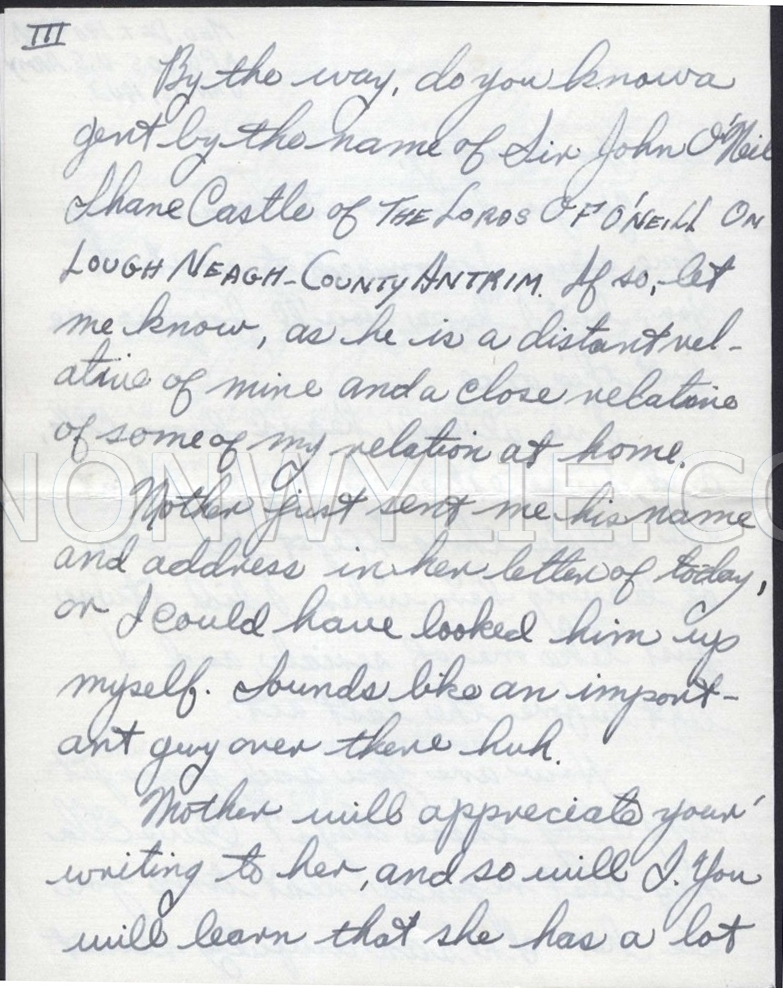 III
By the way, do you know a
gent by the name of Sir John O'Neil
Shane Castle of THE LORDS OF O'NEILL ON
LOUGH NEAGH-COUNTY ANTRIM. If so, let
me know, as he is a distant rel-
ative of mine and a close relative
of some of my relation at home.
Mother just sent me his name
and address in her letter of today,
or I could have looked him up
myself. Sounds like an import-
ant guy over there huh.
Mother will appreciate your
writing to her, and so will I. You
will learn that she has a lot
NONWYLIE.CO